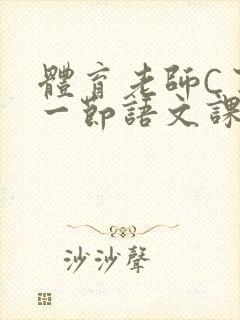 體育老師C
一節語文課
沙沙聲